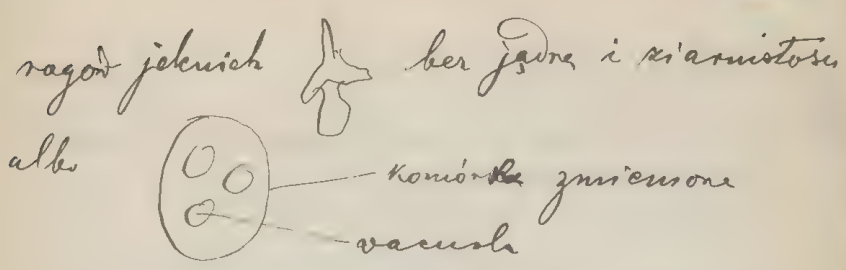 rogów jelenich bez jądra i ziarnistości
albo
komórka zmienione
vacuola